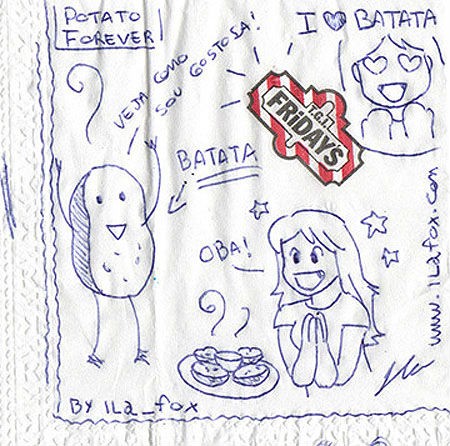 POTATO
FOREVER
I ♥ BATATA
VEJA COMO
SOU GOSTOSA!
T.G.I.
FRiDAYS
BATATA
OBA!
www.ila_fox.com
BY ILA_fox